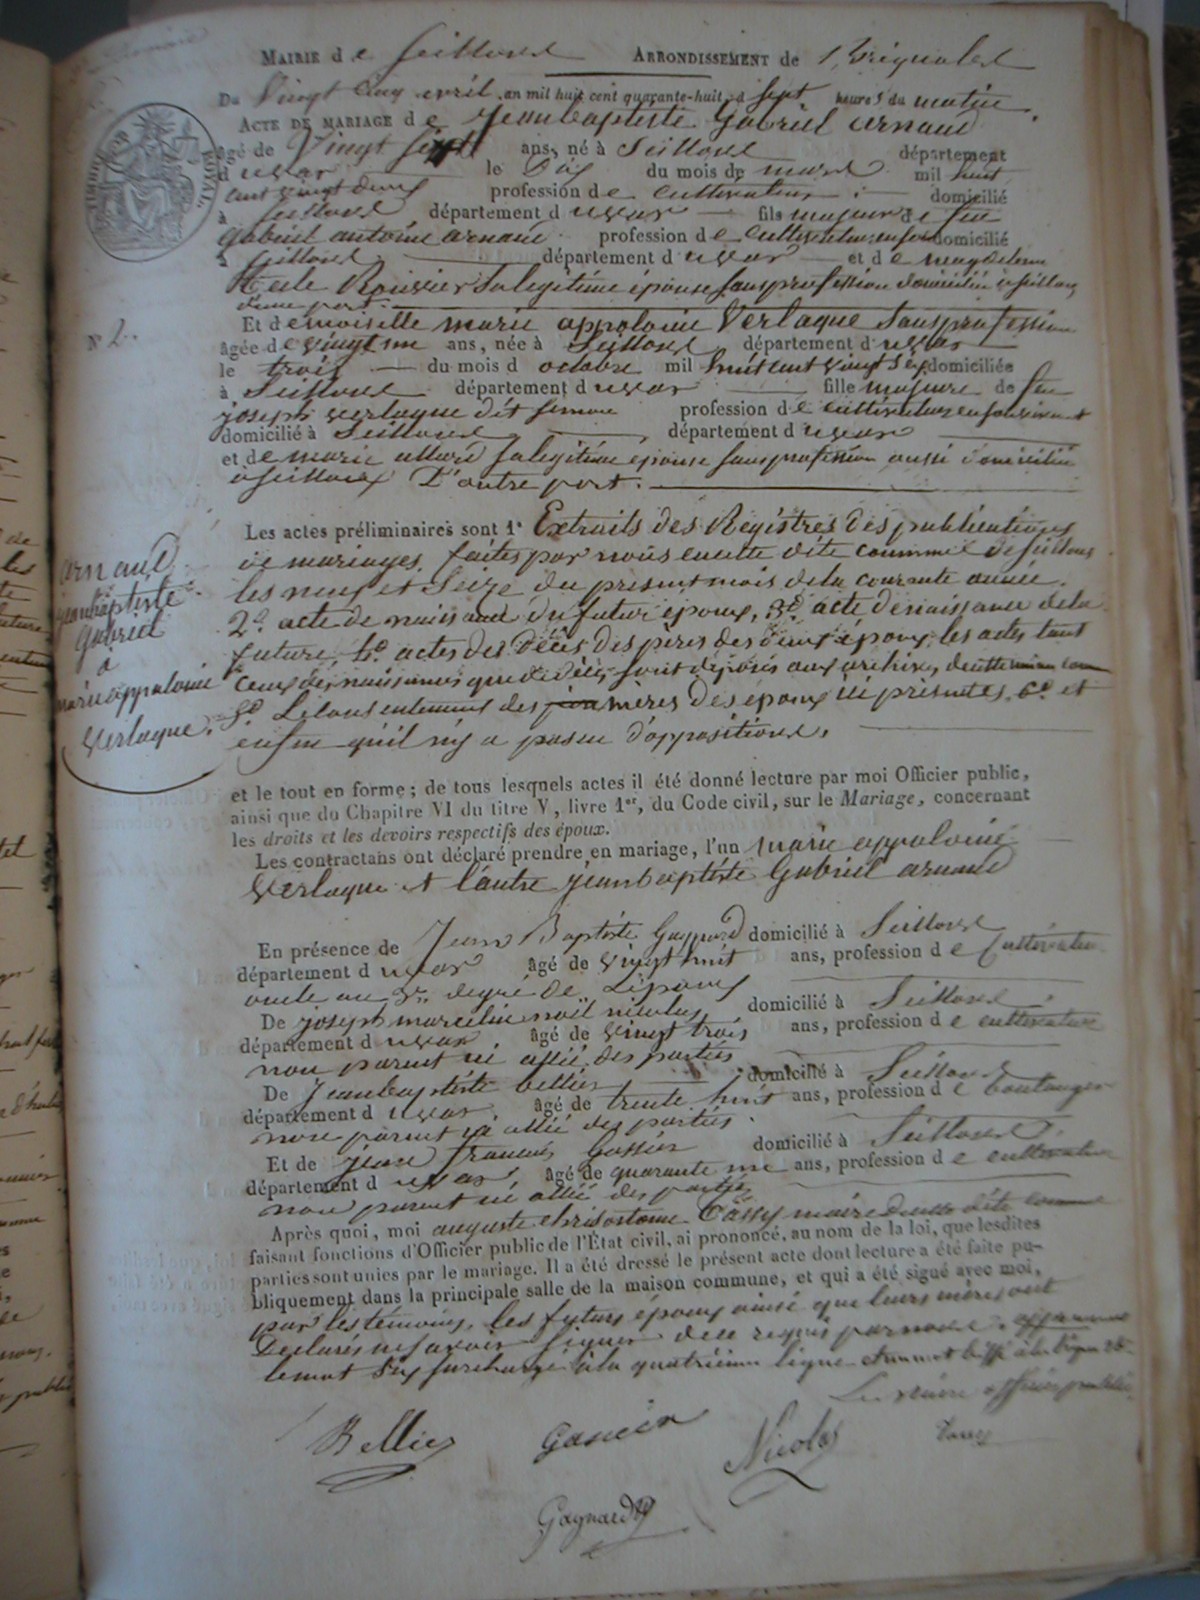 Mairie de Seillons Arrondissement de Brignoles
Du Vingt cinq avril an mil huit cent quarante-huit, à sept heures du matin
Acte de mariage de Jean baptiste Gabriel arnaud
âgé de Vingt six ans, né à Seillons département
d u var le Dix du mois de mars mil huit
cent vingt deux profession de cultivateur domicilié
à Seillons département d u var fils majeur de feu
Gabriel antoine arnaud profession de cultivateur domicilié
à Seillons département d u var et de magdeleine
Rouvier sa légitime épouse sans profession domiciliée à Seillons
d'une part.
Et demoiselle marie appolonie Verlaque sans profession
âgée de vingt un ans, née à Seillons département d u var
le trois du mois d octobre mil huit cent vingt six domiciliée
à Seillons département d u var fille majeure de feu
joseph verlaque dit simon profession de cultivateur en son vivant
domicilié à Seillons département d u var
et de marie sa légitime épouse sans profession aussi domiciliée
à Seillons D'autre part.
N° 2.
arnaud
jean baptiste
Gabriel
a
marie appolonie
Verlaque.
Les actes préliminaires sont 1° Extraits des Registres des publications
de mariages, faites par nous en cette dite commune de Seillons
les neuf et Seize du présent mois de la courante année.
2° acte de naissance du futur époux, 3° acte de naissance de la
future, 4° actes des Décès des pères des deux époux, les actes tant
ceux des naissances que de décès sont déposés aux archives de cette commune
5° Le consentement des mères des époux ici présentes. 6° et
enfin qu'il n'y a pas eu d'oppositions.
et le tout en forme; de tous lesquels actes il été donné lecture par moi Officier public,
ainsi que du Chapitre VI du titre V, livre 1er, du Code civil, sur le Mariage, concernant
les droits et les devoirs respectifs des époux.
Les contractans ont déclaré prendre en mariage, l'un marie appolonie
Verlaque et l'autre jean baptiste Gabriel arnaud
En présence de Jean Baptiste Gagnard domicilié à Seillons
département d u var âgé de vingt huit ans, profession de cultivateur
oncle au 3me degré de L'époux
De joseph marcelin noël nicolas domicilié à Seillons
département d u var âgé de vingt trois ans, profession de cultivateur
non parent ni allié des parties
De Jean baptiste bellier domicilié à Seillons
département d u var, âgé de trente huit ans, profession de boulanger
non parent ni allié des parties.
Et de jean françois domicilié à Seillons
département d u var, âgé de quarante un ans, profession de cultivateur
non parent ni allié des parties
Après quoi, moi auguste chrisostome maire de cette dite commune
faisant fonctions d'Officier public de l'État civil, ai prononcé, au nom de la loi, que lesdites
parties sont unies par le mariage. Il a été dressé le présent acte dont lecture a été faite pu-
bliquement dans la principale salle de la maison commune, et qui a été signé avec moi,
par les témoins, les futurs époux ainsi que leurs mères ont
Déclaré ne savoir signer de ce requis par nous,
le mot six surchargé à la quatrième ligne
Le maire officier public
Bellier Gassier Nicolas
Gagnard